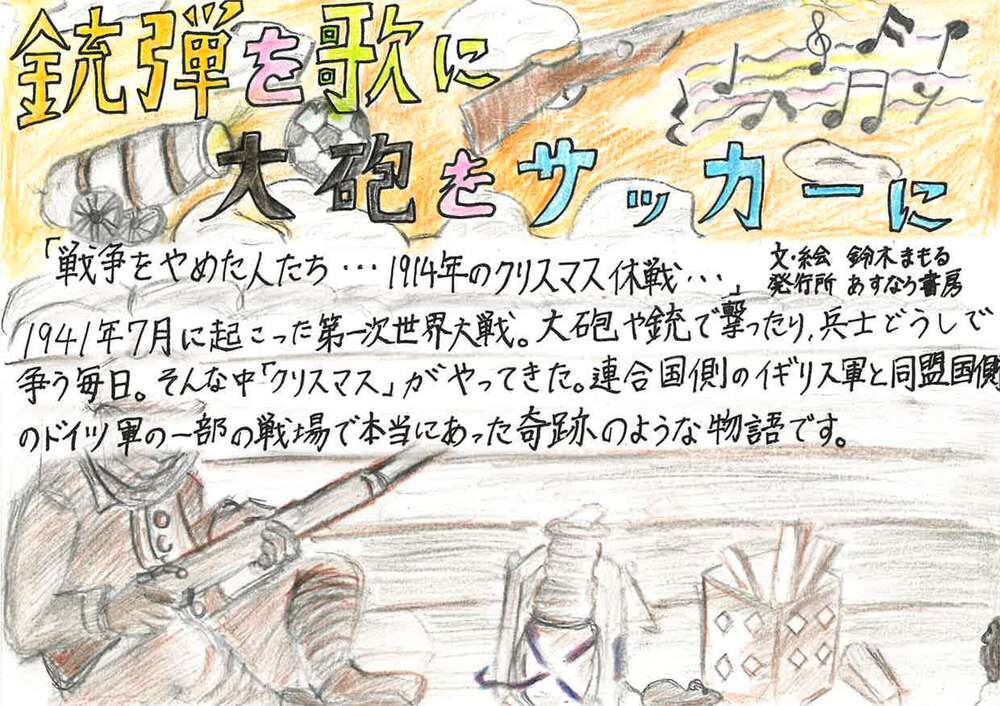 銃弾を歌に
大砲をサッカーに
「戦争をやめた人たち…1914年のクリスマス休戦…」
文・絵 鈴木まもる
発行所 あすなろ書房
1941年7月に起こった第一次世界大戦。大砲や銃で撃ったり、兵士どうしで
争う毎日。そんな中「クリスマス」がやってきた。連合国側のイギリス軍と同盟国側
のドイツ軍の一部の戦場で本当にあった奇跡のような物語です。